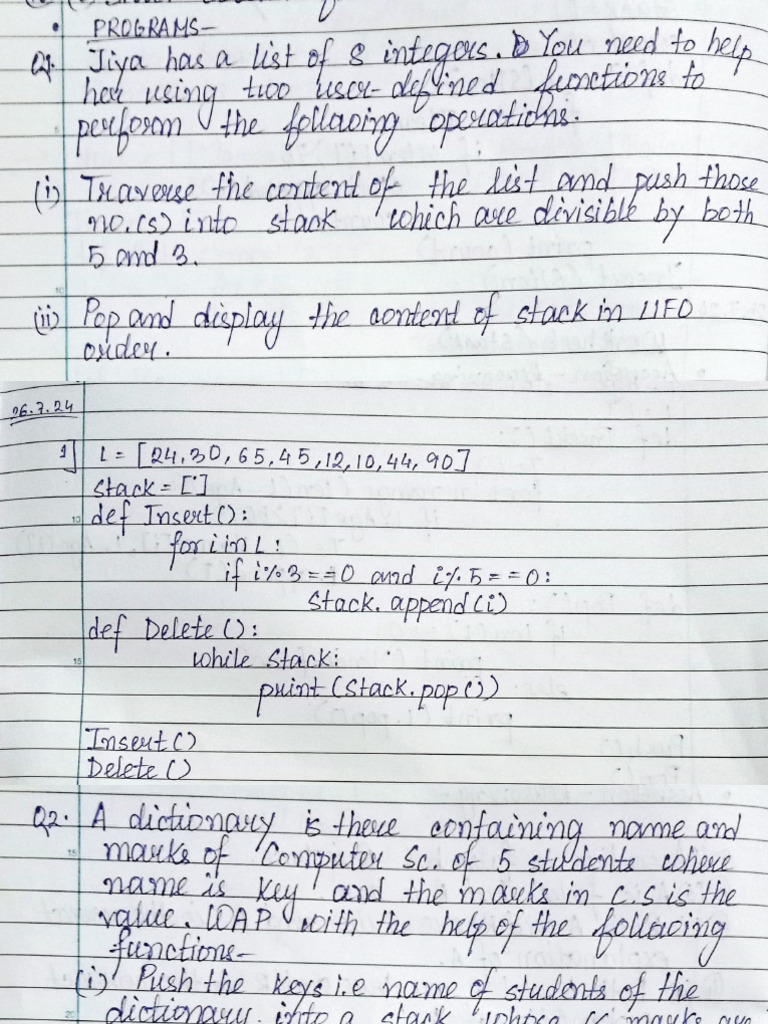 • PROGRAMS-
Q1. Jiya has a list of 8 integers. You need to help
her using two user-defined functions to
perform the following operations.
(i) Traverse the content of the list and push those
no.(s) into stack which are divisible by both
5 and 3.
(ii) Pop and display the content of stack in LIFO
order.
26.7.24
1] L = [24,30,65,45,12,10,44,90]
Stack = []
def Insert():
for i in L:
if i%3==0 and i%5==0:
Stack.append(i)
def Delete():
while Stack:
print(Stack.pop())
Insert()
Delete()
Q2. A dictionary is there containing name and
marks of Computer Sc. of 5 students where
name is Key and the marks in C.S is the
value. WAP with the help of the following
functions-
(i) Push the Keys i.e name of students of the
dictionary into a stack whose CS marks are